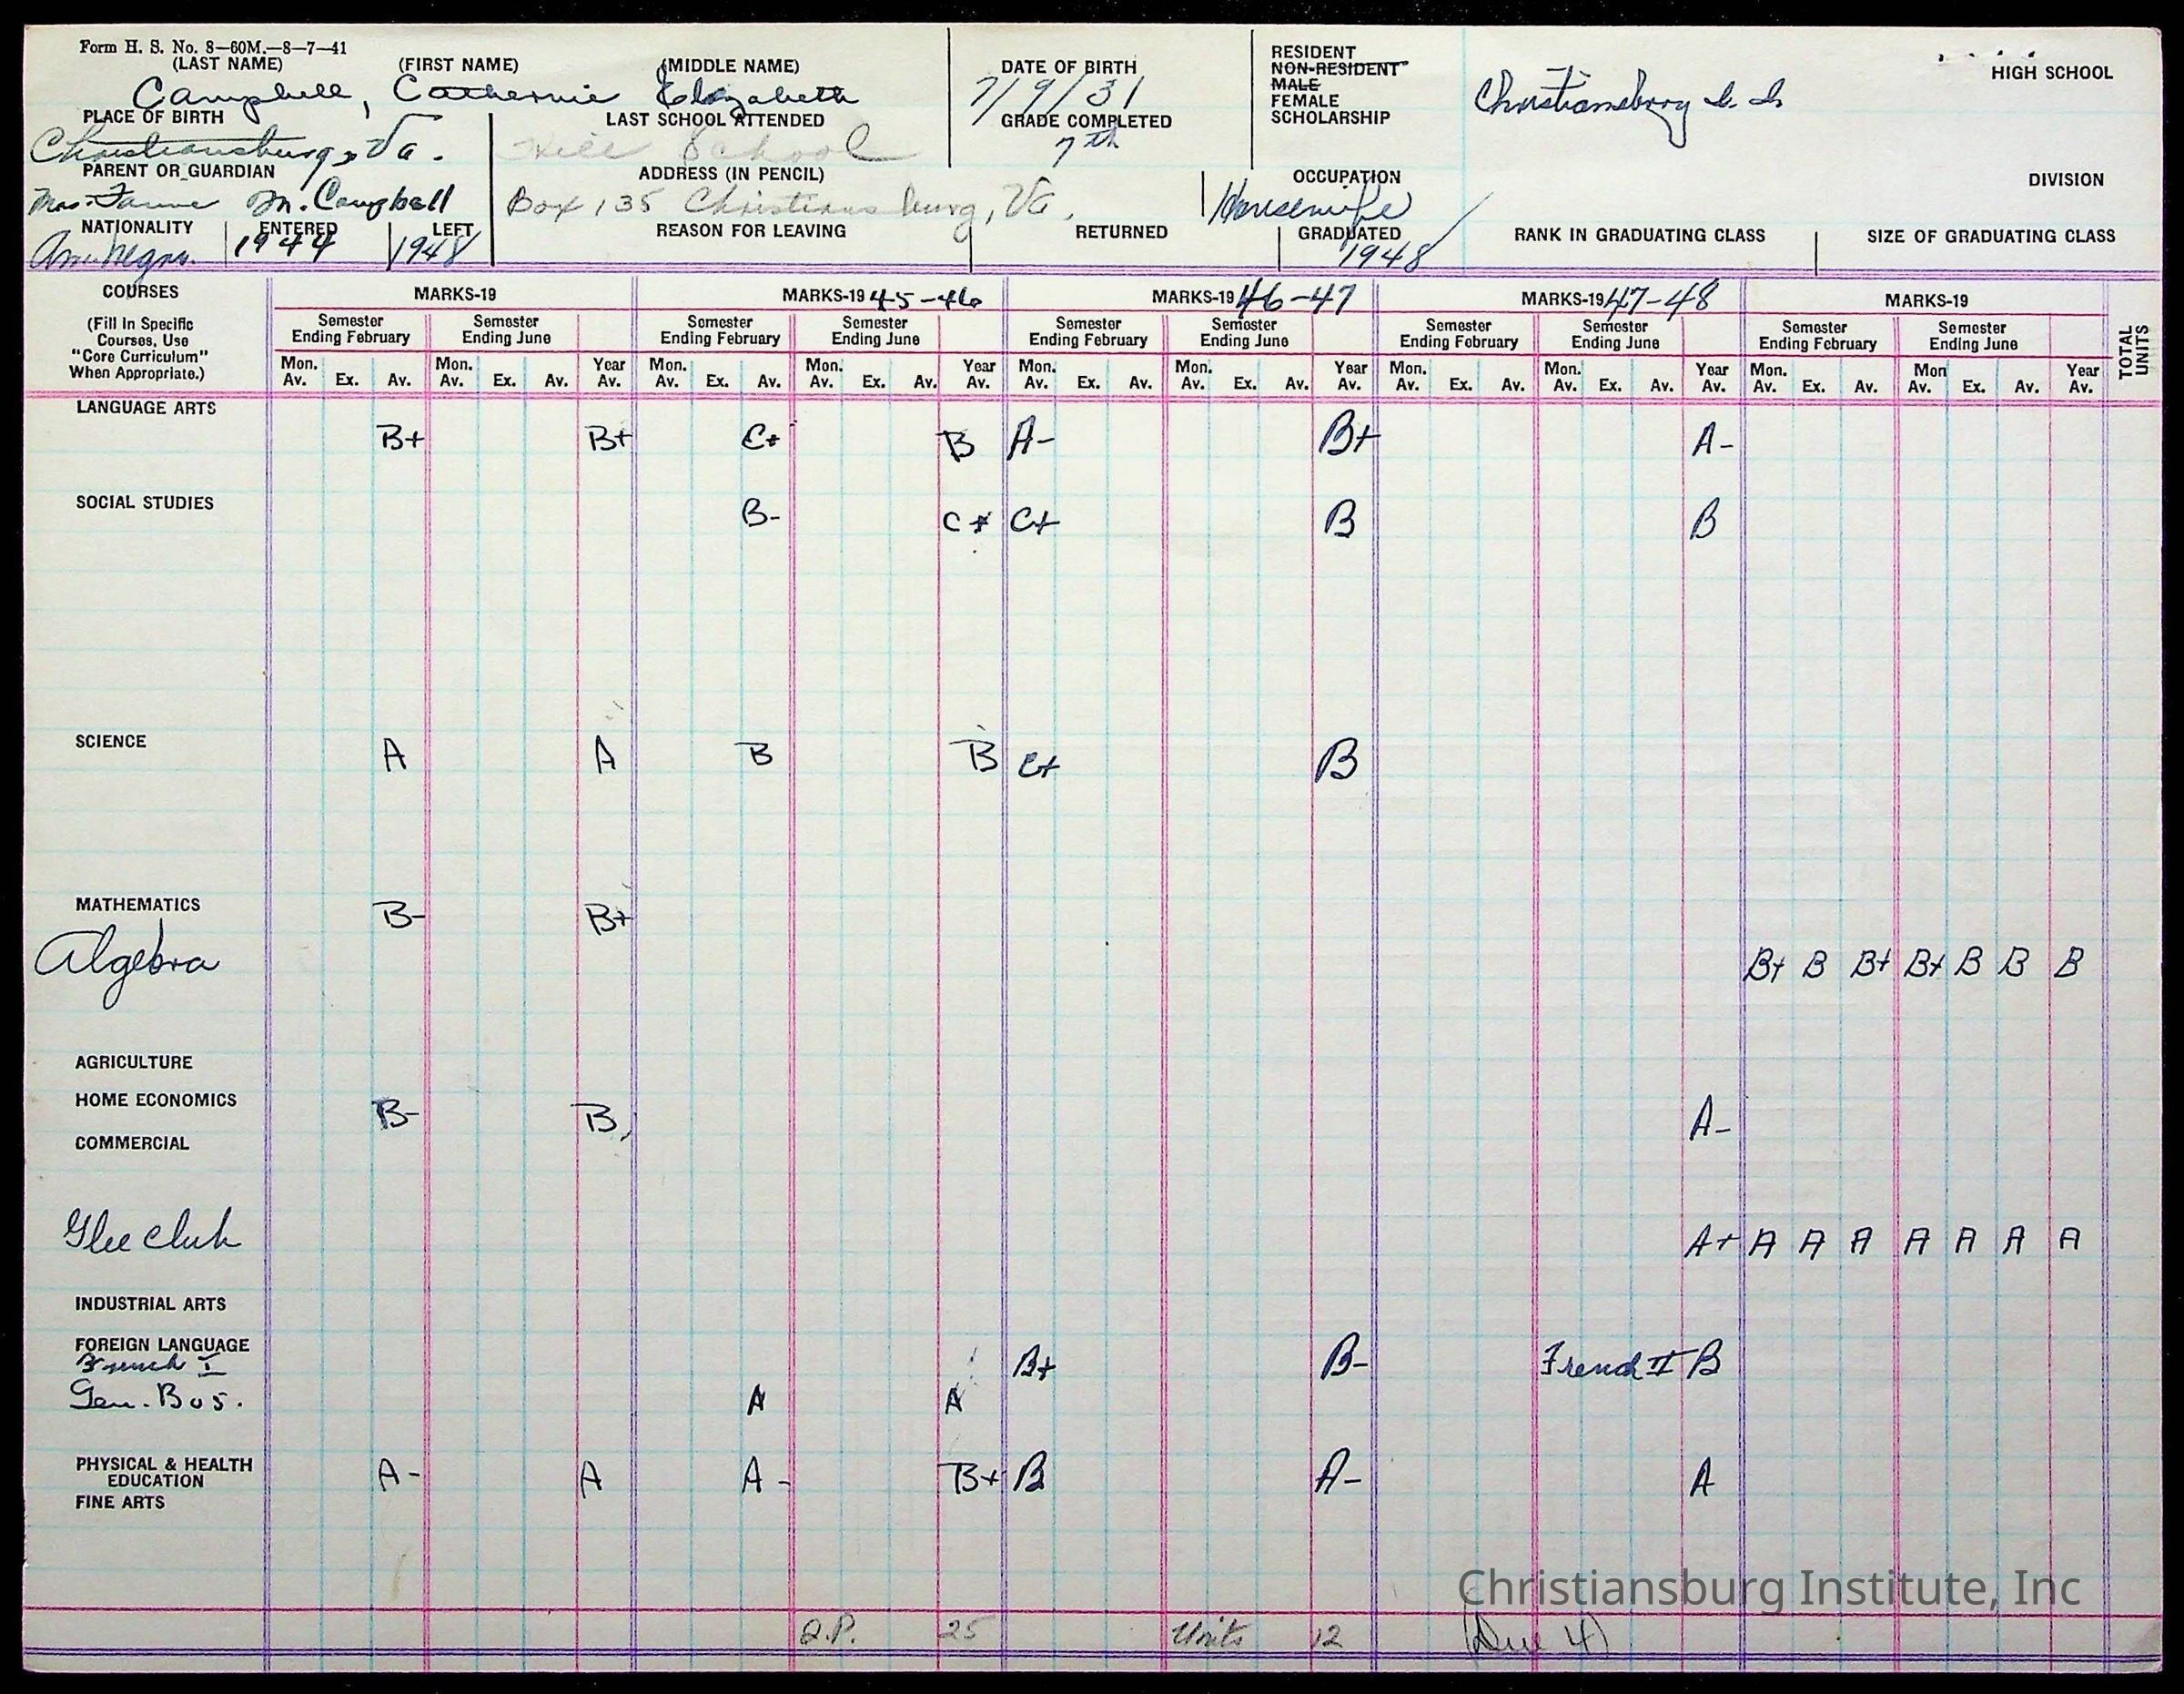 Form H. S. No. 8—60M.—8—7—41
(LAST NAME) (FIRST NAME) (MIDDLE NAME) DATE OF BIRTH RESIDENT HIGH SCHOOL
Campbell, Catherine Elizabeth 7/9/31 NON-RESIDENT Christiansburg
MALE
FEMALE
PLACE OF BIRTH LAST SCHOOL ATTENDED GRADE COMPLETED SCHOLARSHIP
Christiansburg, Va. Hill School 7th
PARENT OR GUARDIAN ADDRESS (IN PENCIL) OCCUPATION DIVISION
Mrs. M. Campbell Box 135 Christiansburg, Va. Housewife
NATIONALITY ENTERED LEFT REASON FOR LEAVING RETURNED GRADUATED RANK IN GRADUATING CLASS SIZE OF GRADUATING CLASS
Am. Negro. 1944 1948 1948
COURSES MARKS-19 MARKS-19 45-46 MARKS-19 46-47 MARKS-19 47-48 MARKS-19
(Fill In Specific Courses, Use "Core Curriculum" When Appropriate.)
Semester Ending February Semester Ending June Semester Ending February Semester Ending June Semester Ending February Semester Ending June Semester Ending February Semester Ending June Semester Ending February Semester Ending June TOTAL UNITS
Mon. Av. Ex. Av. Mon. Av. Ex. Av. Year Av. Mon. Av. Ex. Av. Mon. Av. Ex. Av. Year Av. Mon. Av. Ex. Av. Mon. Av. Ex. Av. Year Av. Mon. Av. Ex. Av. Mon. Av. Ex. Av. Year Av. Mon. Av. Ex. Av. Mon Av. Ex. Av. Year Av.
LANGUAGE ARTS
B+ B+ C+ B A- B+ A-
SOCIAL STUDIES
B- C+ C+ B B
SCIENCE
A A B B C+ B
MATHEMATICS
B- B+
Algebra B+ B B+ B+ B B B
AGRICULTURE
HOME ECONOMICS
B- B A-
COMMERCIAL
Glee Club A+ A A A A A A A
INDUSTRIAL ARTS
FOREIGN LANGUAGE
French I B+ B- French II B
Gen. Bus. A A
PHYSICAL & HEALTH EDUCATION A- A A- B+ B A- A
FINE ARTS
Christiansburg Institute, Inc
Q.P. 25 Units 12 (Due 4)